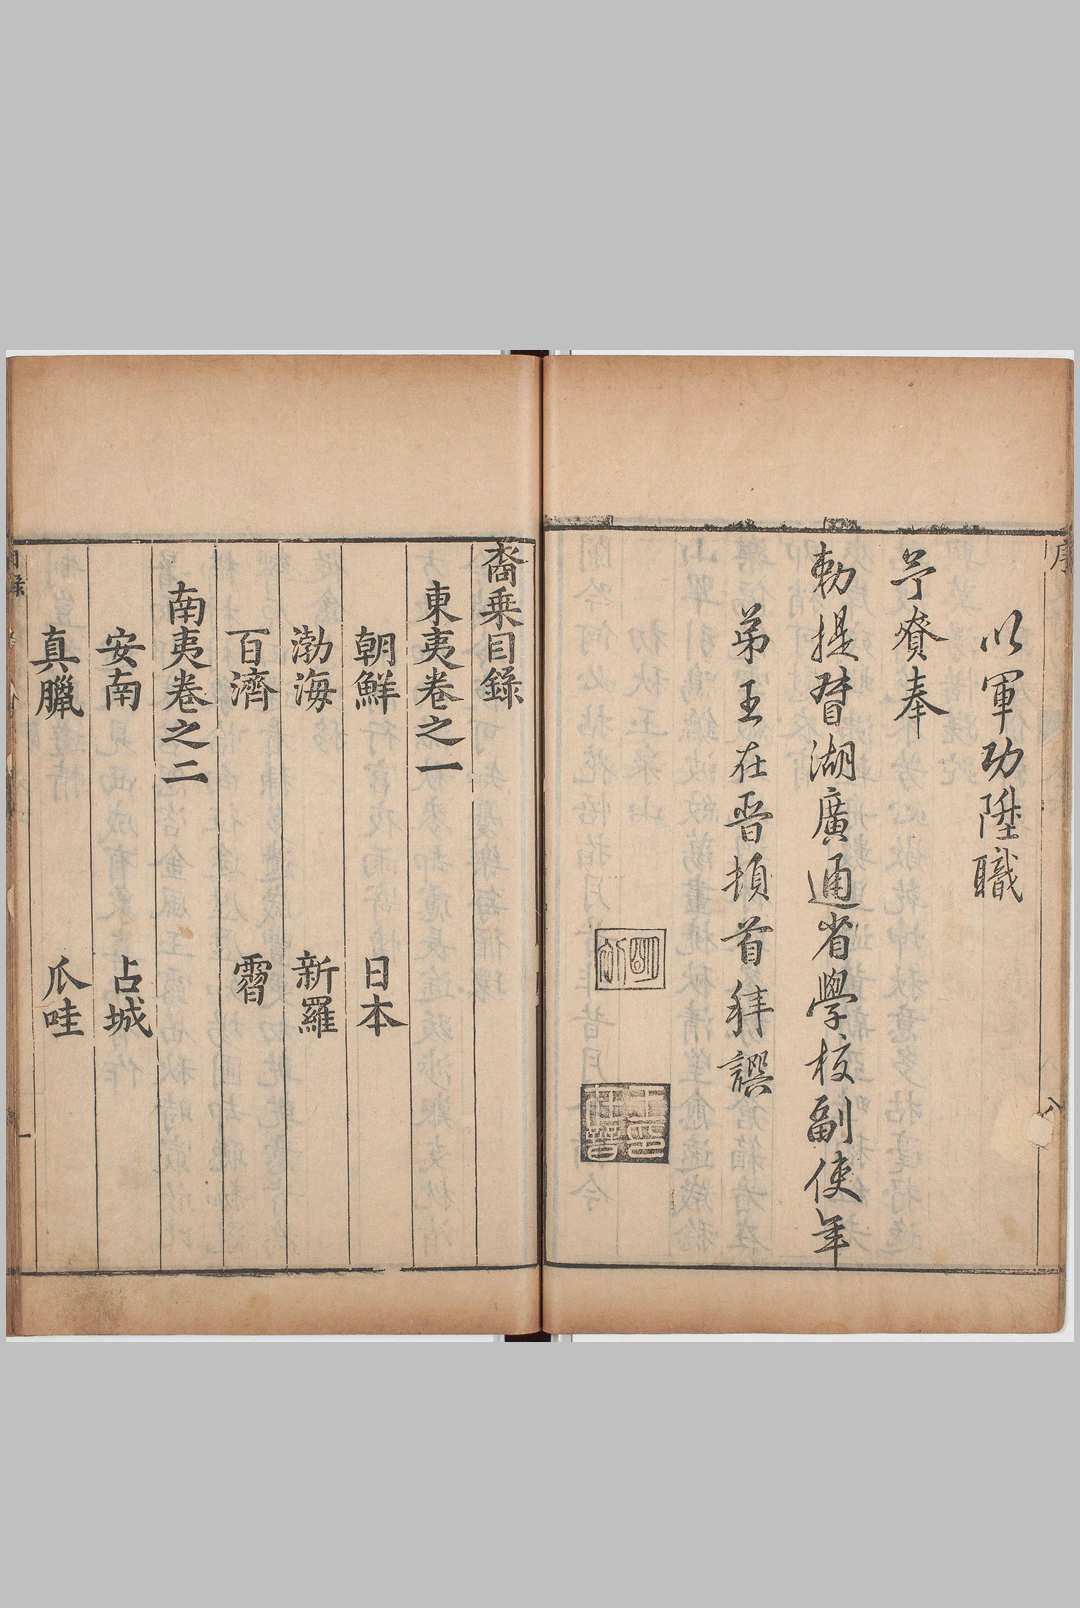 序
以軍功陞職
予賚奉
勅提督湖廣通省學校副使年
弟王在晋頓首拜譔
王在晉
裔乘目錄
東夷卷之一
朝鮮　日本
渤海　新羅
百濟　霫
南夷卷之二
安南　占城
真臘　瓜哇
目錄
一